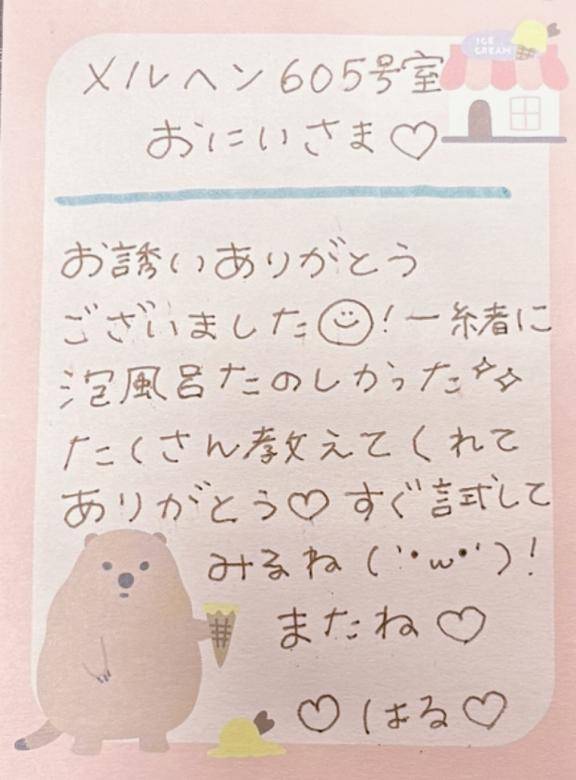 ICE
CREAM
メルヘン605号室
おにいさま♡
お誘いありがとう
ございました☺!一緒に
泡風呂たのしかった✧✧
たくさん教えてくれて
ありがとう♡すぐ試して
みるね(´•ω•`)!
またね♡
♡はる♡